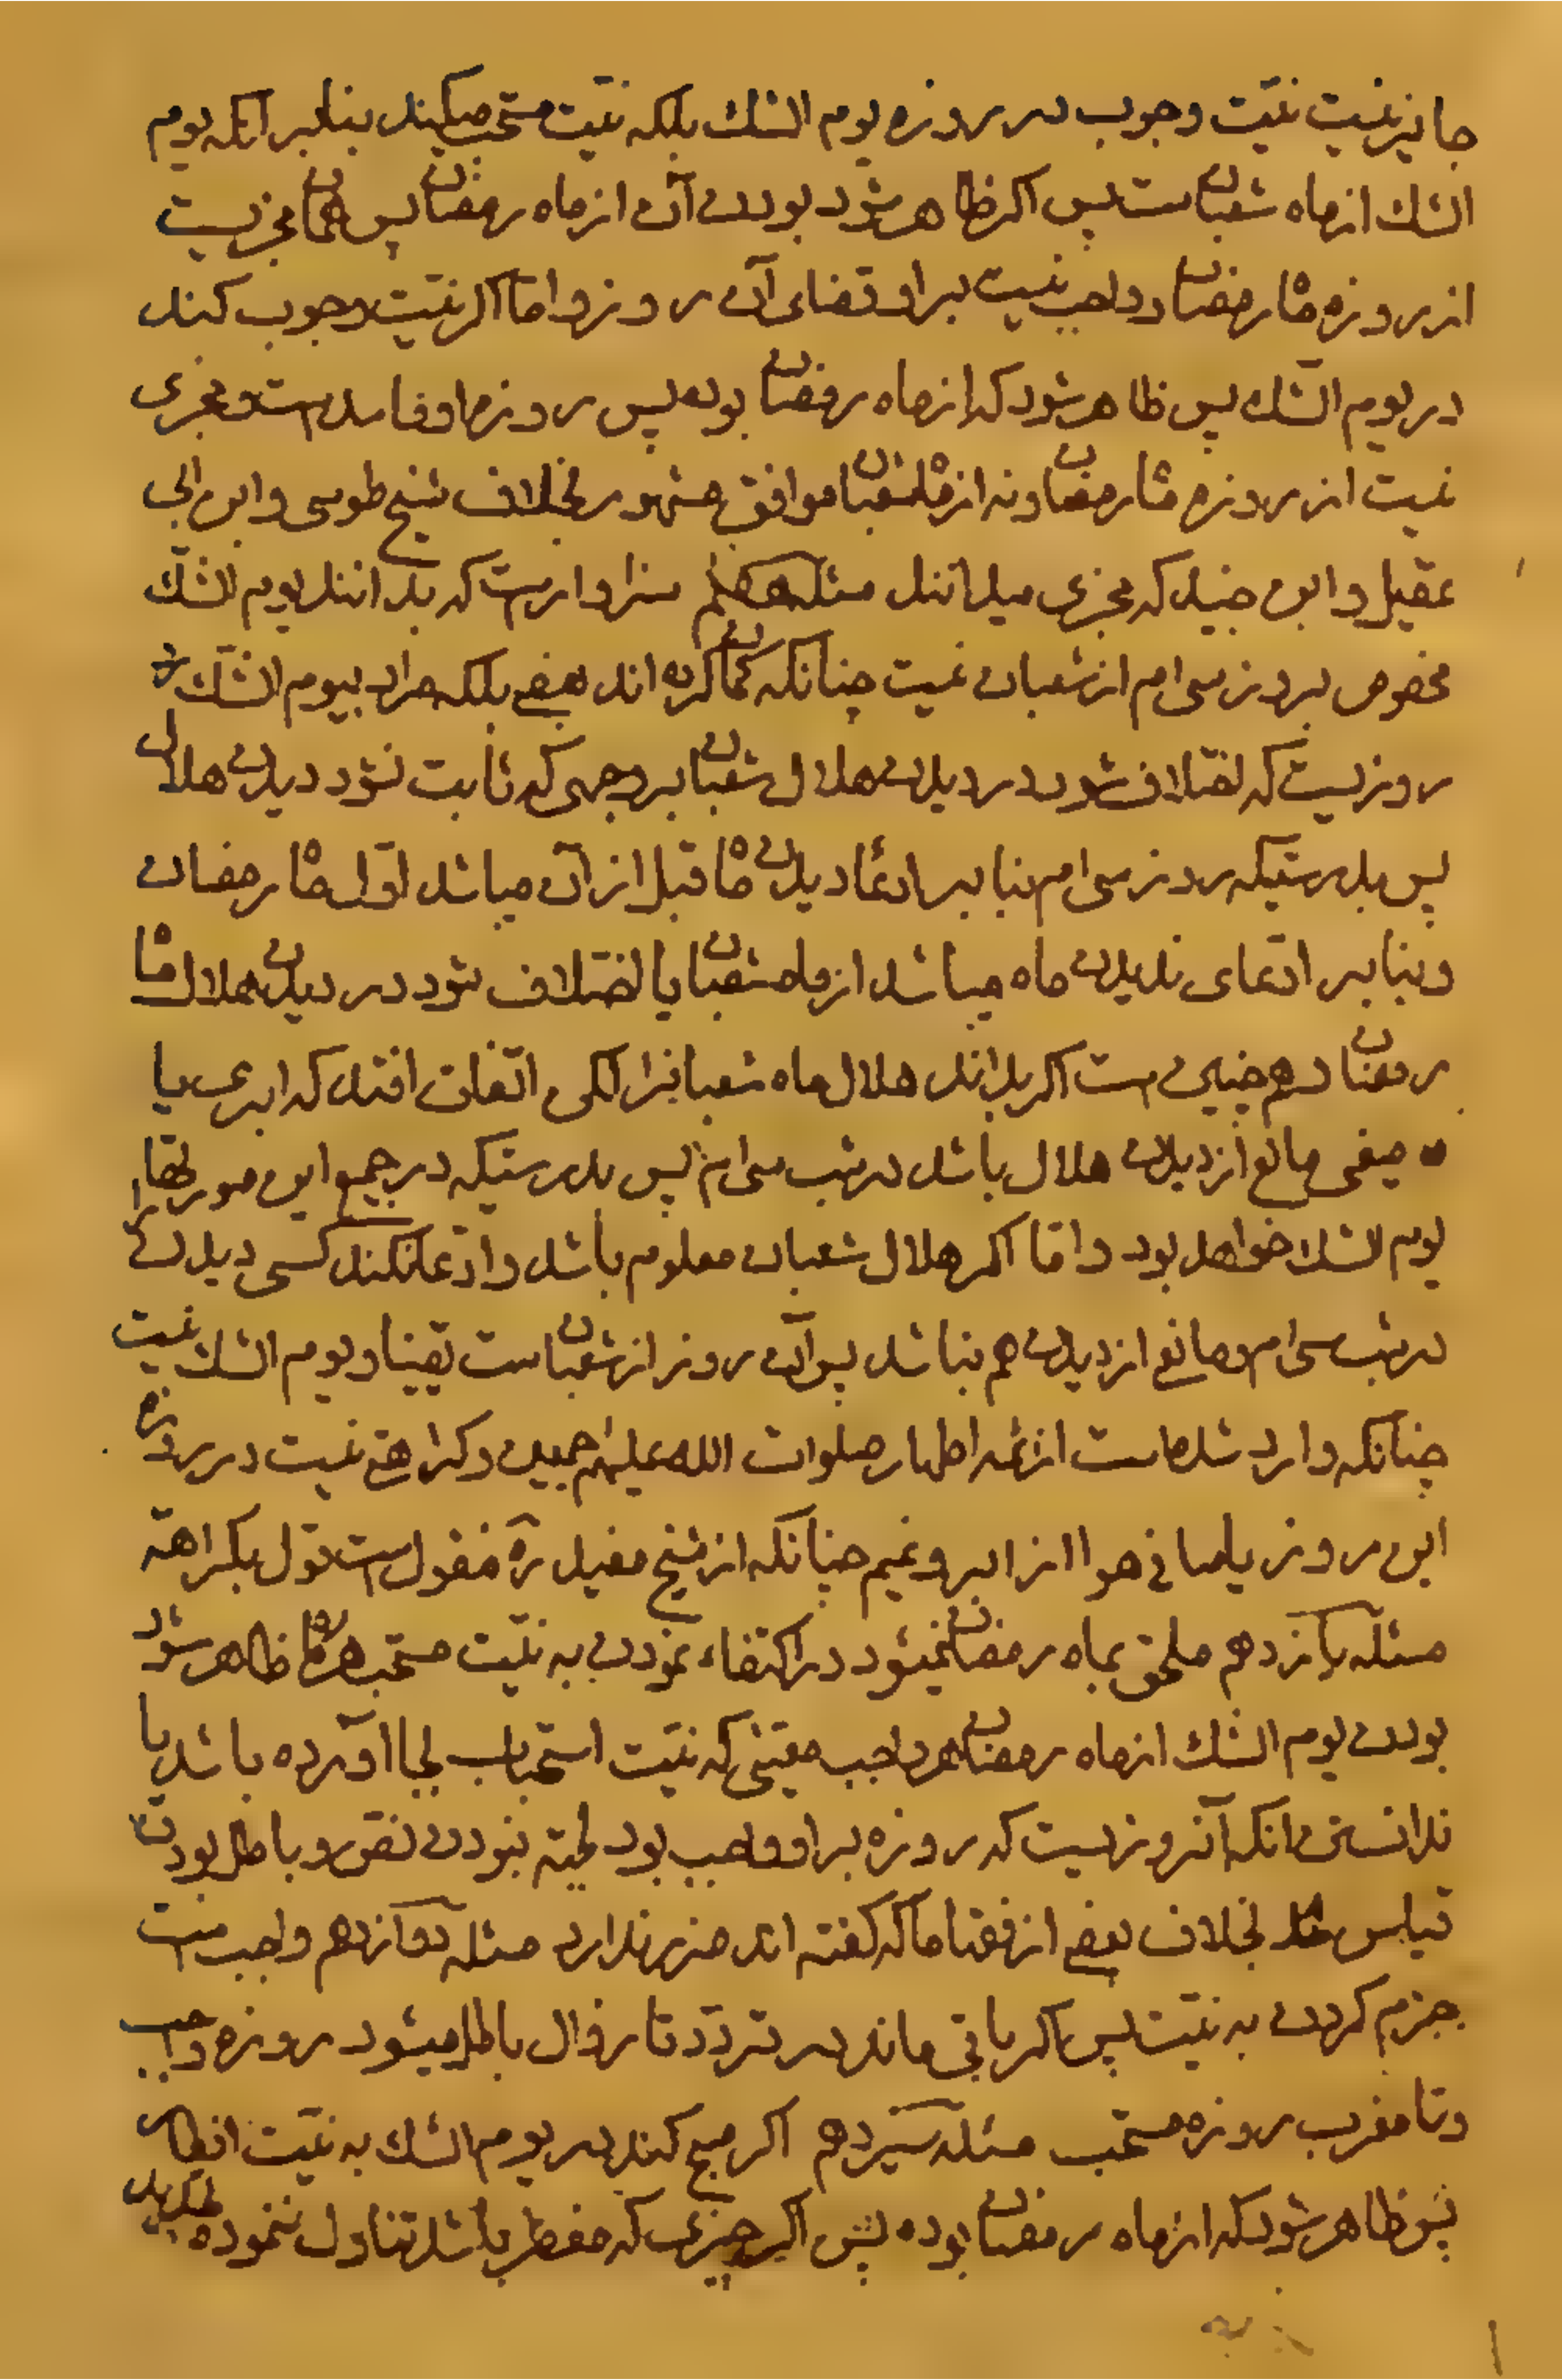 جایز نیست نیّت وجوب در روزه یوم الشك بلکه نیّت مستحب میکند بنابر آنکه یوم
الشك از ماه شعبان است پس اکر ظاهر شود بودن آن از ماه رمضان پس همان مجزیست
از روزه ماه رمضان و واجب نیست بر او قضای آن روز و امّا اکر نیّت وجوب کند
در یوم الشّك پس ظاهر شود که از ماه رمضان بوده پس روزه او فاسد است و مجزی
نیست از روزه ماه رمضان و نه از ماه شعبان موافق مشهور بخلاف شیخ طوسی و ابن ابی
عقیل و ابن جنید که مجزی میدانند مسئله دهم سزاوار است که بدانند یوم الشّك
مخصوص بروز سی ام از شعبان نیست چنانکه کمان کرده اند بعضی بلکه مراد بیوم الشّك هر
روزیست که اختلاف شود در دیدن هلال شعبان بر وجهی که ثابت نشود دیدن هلال
پس بدرستیکه روز سی ام بنابر ادّعا دیدن ماه قبل از آن میباشد اوّل ماه رمضان
و بنابر ادّعای ندیدن ماه میباشد از ماه شعبان یا اختلاف شود در دیدن هلال ماه
رمضان و همچنین است اکر بدانند هلال ماه شعبانرا لکن اتّفاق افتد که ابری یا
مانع از دیدن هلال باشد در شب سی ام پس بدرستیکه در جمیع این صورتها
یوم الشك خواهد بود و امّا اکر هلال شعبان معلوم باشد و ادّعا نکند کسی دیدن را
در شب سی ام و مانع از دیدن هم نباشد پس آن روز از شعبان است یقینا و یوم الشك نیست
چنانکه وارد شده است از ائمه اطهار صلوات الله علیهم اجمعین و کراهتی نیست در روزه
این روز با صافی هوا از ابر و غیم چنانکه از شیخ مفید ره منقول است قول بکراهة
مسئله یازدهم ملحق بماه رمضان نمیشود در اکتفاء نمودن به نیّت مستحب هرکاه ظاهر شود
بودن یوم الشك از ماه رمضان هر واجب معیّنی که نیّت استحباب بجا آورده باشد با
ندانستن آنکه آنروزیست که روزه بر او واجب بود بجهة نبودن نص و باطل بودن
قیاس بخلاف بعضی از فقهاء ما که کفته اند ضرر ندارد مسئله دوازدهم واجب است
جزم کردن به نیّت پس اکر باقی ماند در تردّد تا زوال باطل میشود روزه واجب
و تا مغرب روزه مستحب مسئله سیزدهم اکر صبح کند در یوم الشك به نیّت افطار
پس ظاهر شود که از ماه رمضان بوده پس اکر چیزی که مفطر باشد تناول ننموده